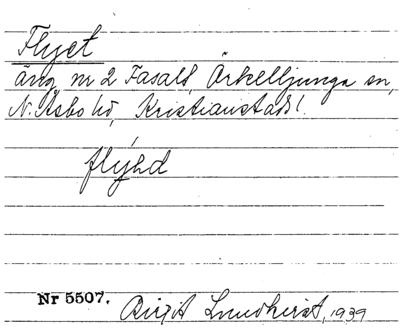 Flyet
äng nr 2 Fasalt, Örkelljunga sn,
N. Åsbo hd, Kristianstads l.
flýəd
Nr 5507. Birgit Lundkvist, 1939